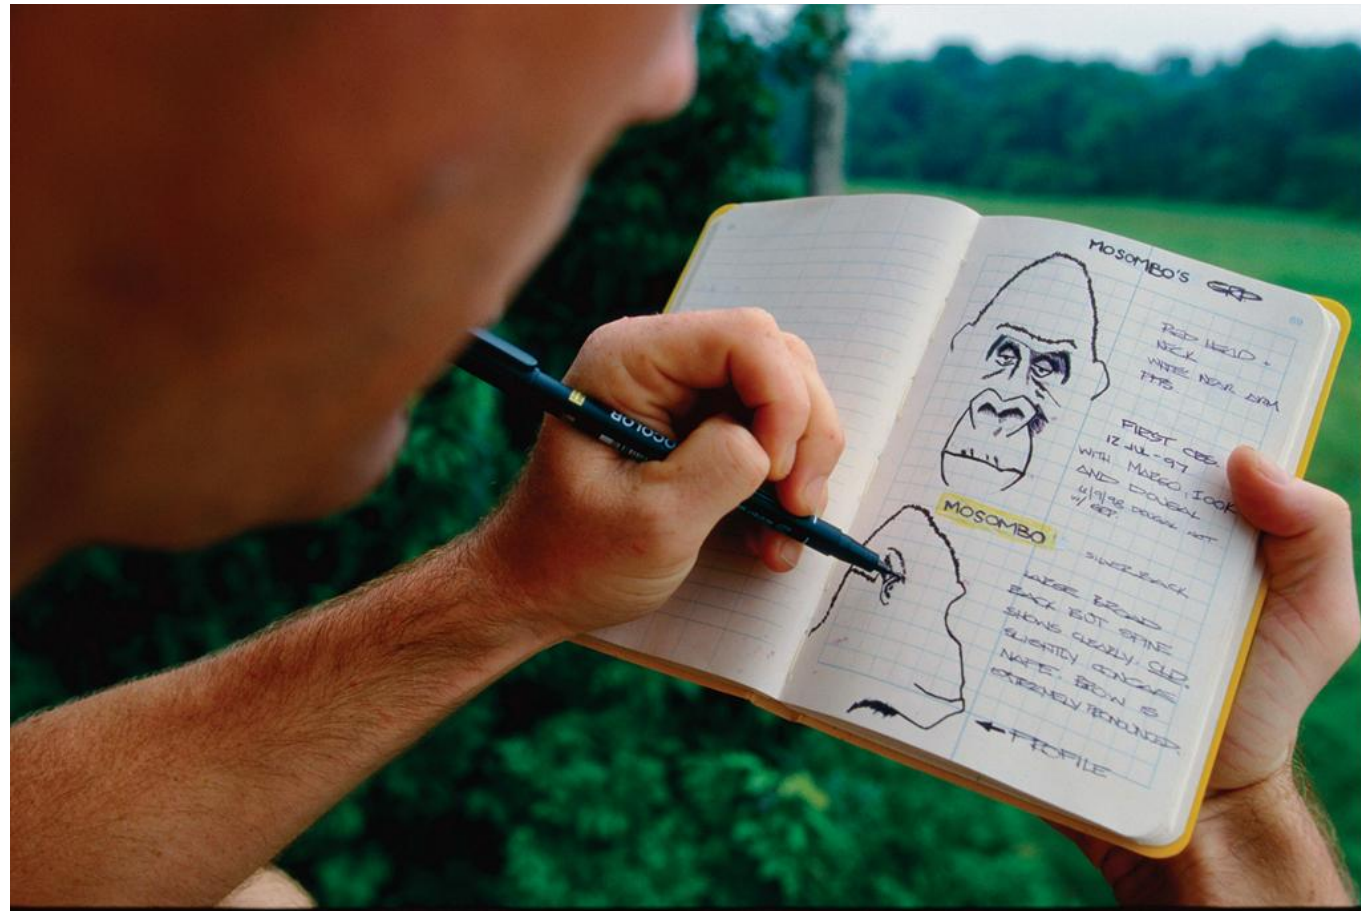 MOSOMBO'S GRP
RED HEAD +
NECK
WHITE NEAR ARM
PITS
FIRST OBS.
12 JUL-97
WITH MARGO, 100K
AND DOUGAL
4/9/98 DOUGAL NOT
W/ GRP.
MOSOMBO
SILVERBACK
LARGE BROAD
BACK BUT SPINE
SHOWS CLEARLY. OLD.
SLIGHTLY CONCAVE
NAPE. BROW IS
EXTREMELY PRONOUNCED.
← PROFILE
OCOLOR